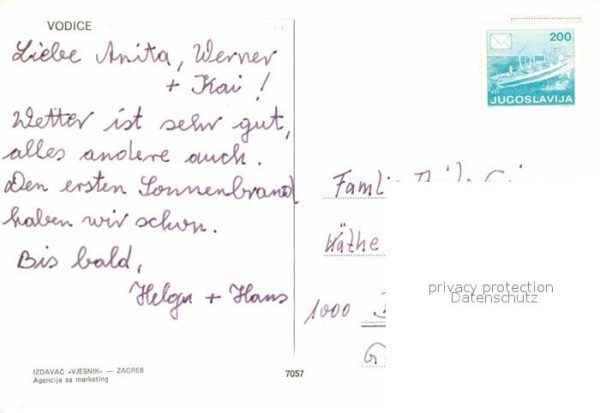 VODICE
Liebe Anita, Werner
+ Kai !
Wetter ist sehr gut,
alles andere auch.
Den ersten Sonnenbrand
haben wir schon.
Bis bald,
Helga + Hans
200
JUGOSLAVIJA
Famli
Käthe
1000
G
privacy protection
Datenschutz
IZDAVAČ »VJESNIK« — ZAGREB
Agencija za marketing
7057